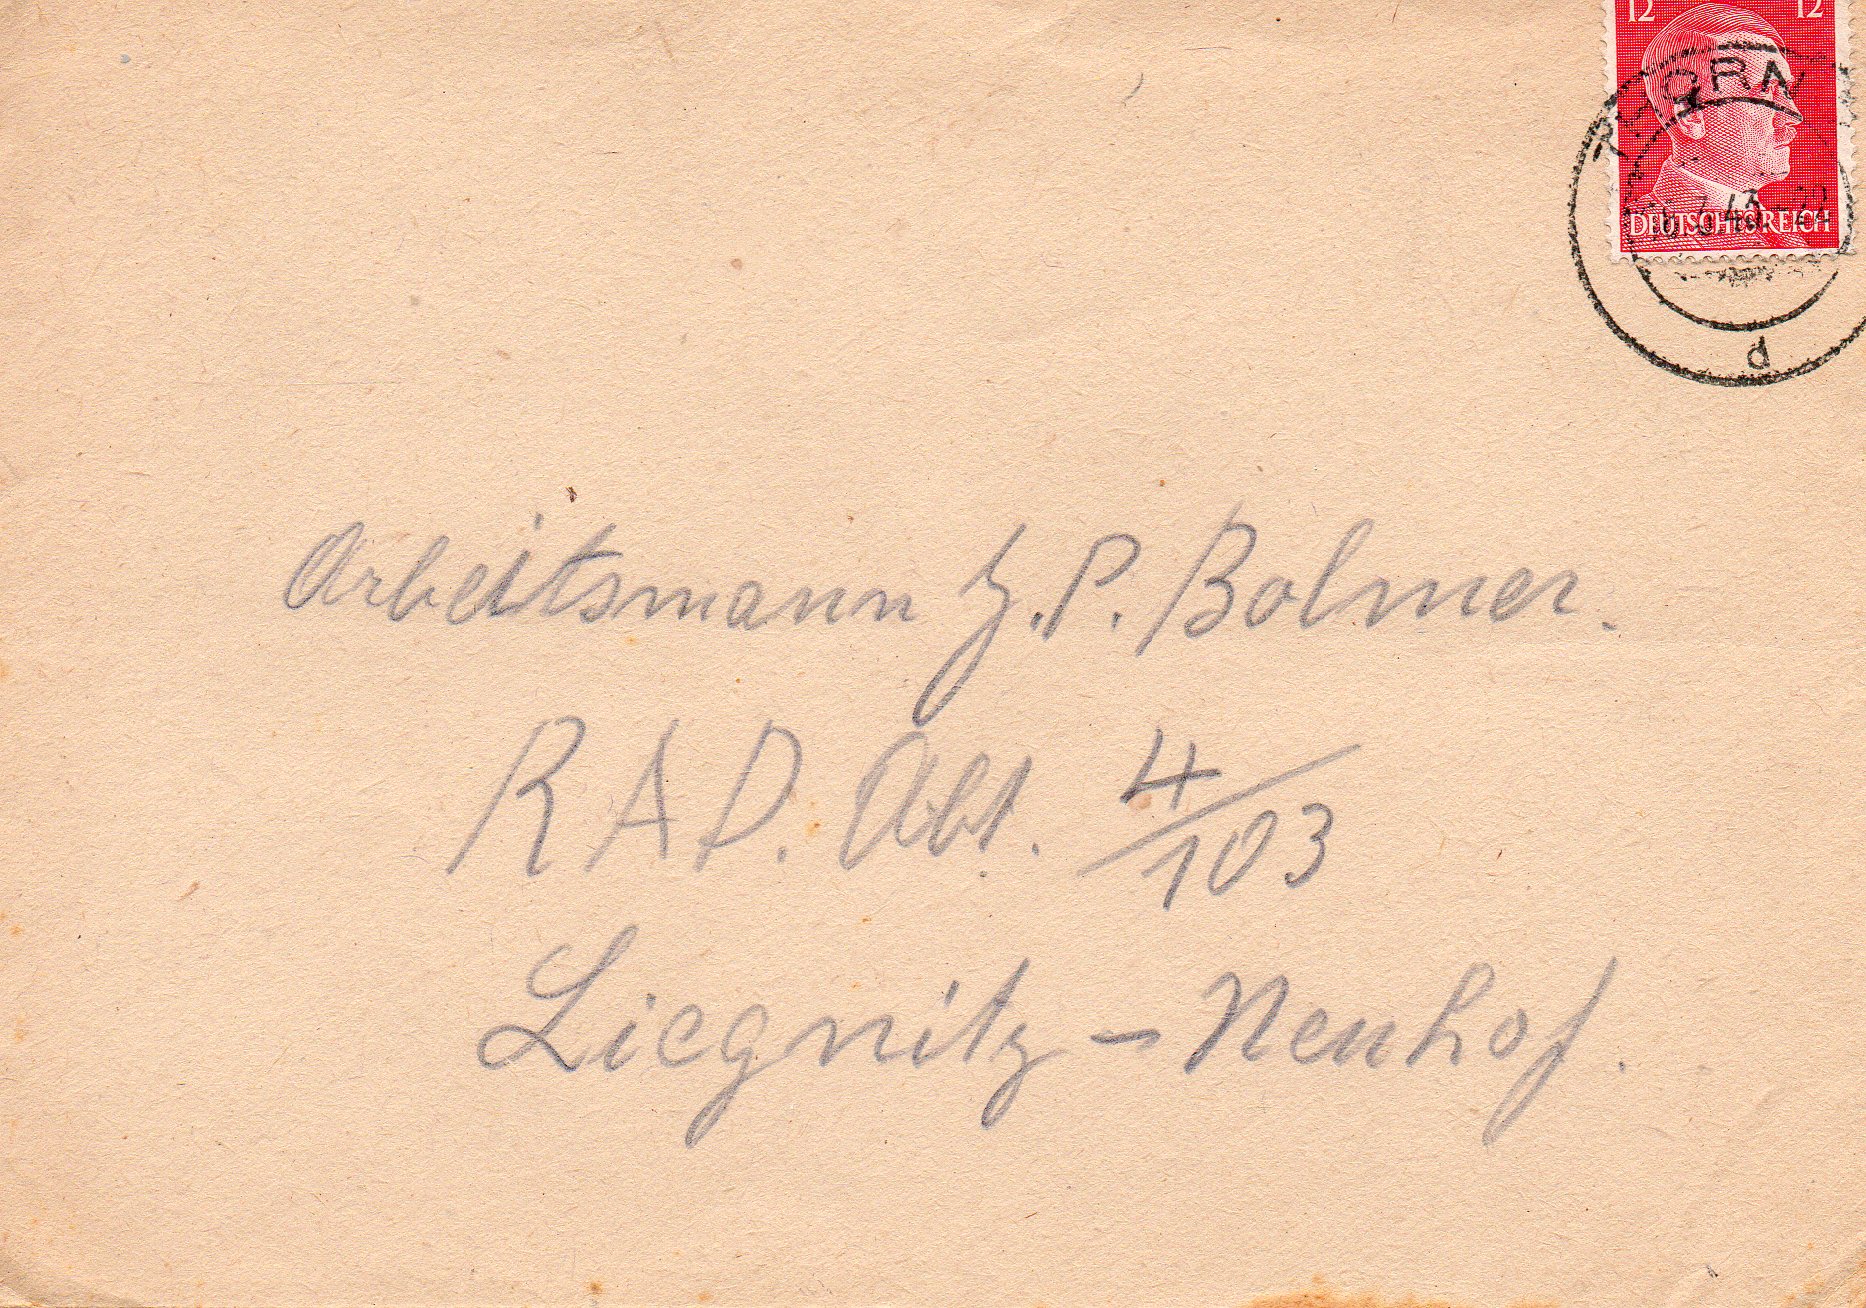 12 12
THORN
.6.43.-22
DEUTSCHES REICH
d
Arbeitsmann H. P. Bolmer.
R A D. Abt. 4/103
Liegnitz – Neuhof.